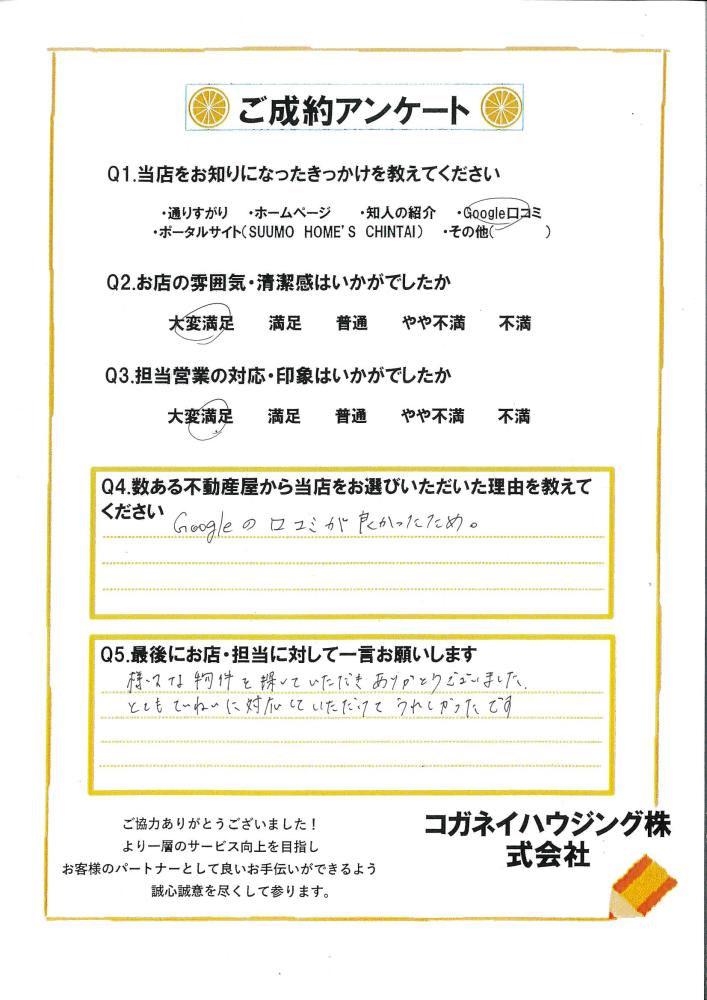 ご成約アンケート
Q1.当店をお知りになったきっかけを教えてください
・通りすがり ・ホームページ ・知人の紹介 ・Google口コミ
・ポータルサイト(SUUMO HOME'S CHINTAI) ・その他( )
Q2.お店の雰囲気・清潔感はいかがでしたか
大変満足 満足 普通 やや不満 不満
Q3.担当営業の対応・印象はいかがでしたか
大変満足 満足 普通 やや不満 不満
Q4.数ある不動産屋から当店をお選びいただいた理由を教えて
ください
Googleの口コミが良かったため。
Q5.最後にお店・担当に対して一言お願いします
様々な物件を探していただきありがとうございました。
とてもていねいに対応していただけてうれしかったです
ご協力ありがとうございました!
より一層のサービス向上を目指し
お客様のパートナーとして良いお手伝いができるよう
誠心誠意を尽くして参ります。
コガネイハウジング株
式会社